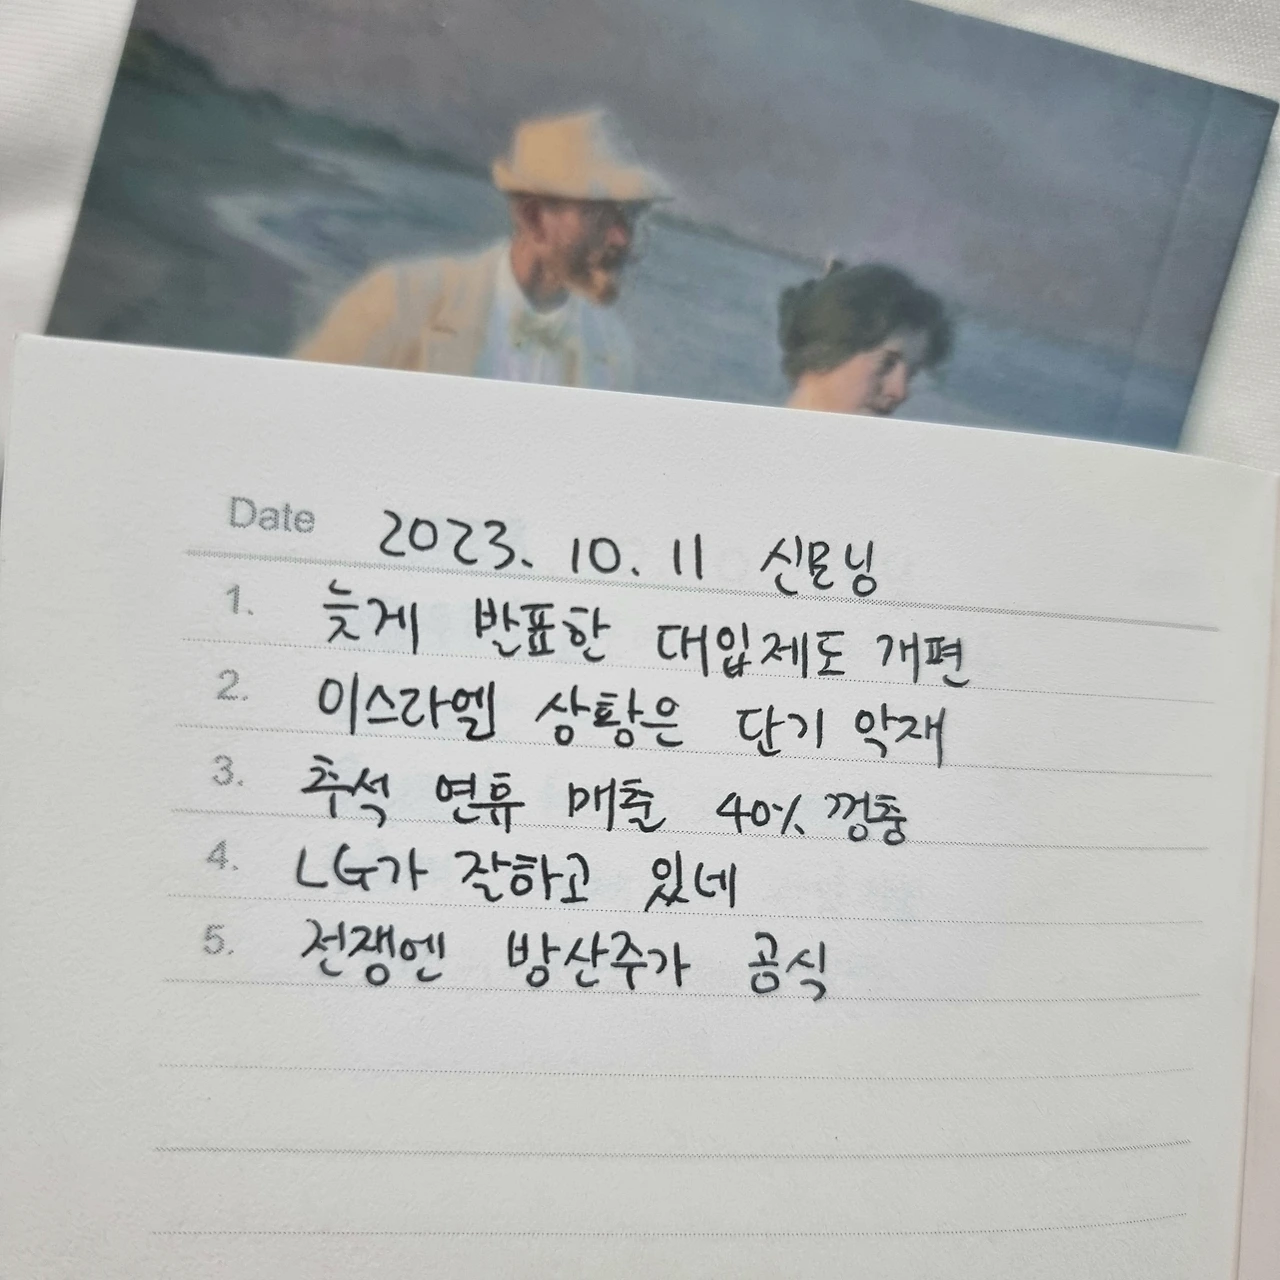 Date 2023. 10. 11 신모닝
1. 늦게 발표한 대입제도 개편
2. 이스라엘 상황은 단기 악재
3. 추석 연휴 매출 40% 껑충
4. LG가 잘하고 있네
5. 전쟁엔 방산주가 공식